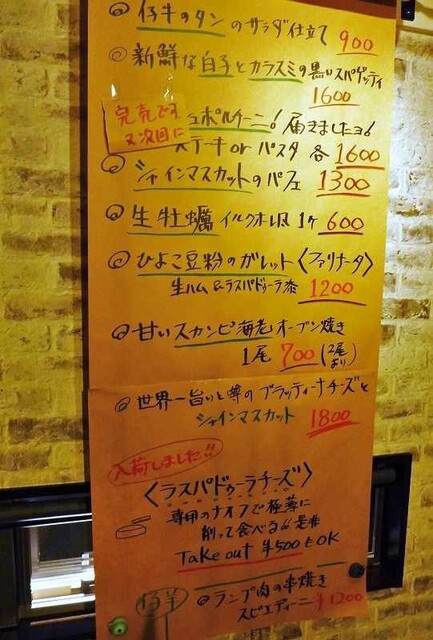 ◎仔牛のタンのサラダ仕立て 900
◎新鮮な白子とカラスミの黒いスパゲッティ
1600
完売です
又次回に
ュポルチーニ！届きましたヨ！
ステーキorパスタ 各1600
◎シャインマスカットのパフェ 1300
◎生牡蠣 1ケ 600
◎ひよこ豆粉のガレット〈ファリナータ〉
生ハム&ラスパドゥーラ添 1200
◎甘いスカンピ海老オーブン焼き
1尾 700 (2尾より)
◎世界一旨いと噂のブラッティーナチーズと
シャインマスカット 1800
入荷しました!!
〈ラスパドゥーラチーズ〉
専用のナイフで極薄に
削って食べる 是非
Take out ¥500もOK
仔羊 ◎ランプ肉の串焼き
スピエディーニ ¥1200